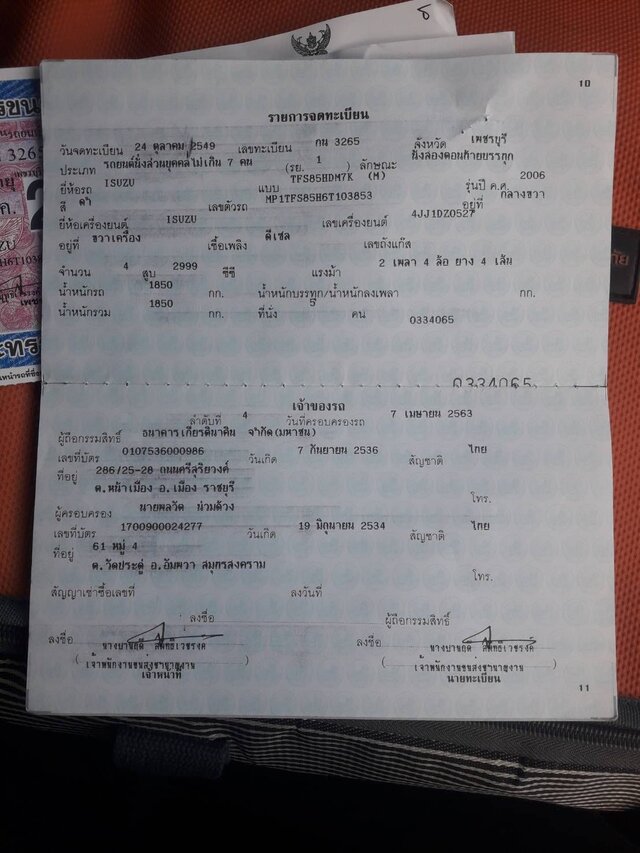 10
รายการจดทะเบียน
วันจดทะเบียน 24 ตุลาคม 2549 เลขทะเบียน กน 3265 จังหวัด เพชรบุรี
ประเภท รถยนต์นั่งส่วนบุคคลไม่เกิน 7 คน (รย. 1 ) ลักษณะ นั่งสองตอนท้ายบรรทุก
ยี่ห้อรถ ISUZU แบบ TFS85HDM7K (M) รุ่นปี ค.ศ. 2006
สี ดำ เลขตัวรถ MP1TFS85H6T103853 อยู่ที่ กลางขวา
ยี่ห้อเครื่องยนต์ ISUZU เลขเครื่องยนต์ 4JJ1DZ0527
อยู่ที่ ขวาเครื่อง เชื้อเพลิง ดีเซล เลขถังแก๊ส
จำนวน 4 สูบ 2999 ซีซี แรงม้า 2 เพลา 4 ล้อ ยาง 4 เส้น
น้ำหนักรถ 1850 กก. น้ำหนักบรรทุก/น้ำหนักลงเพลา กก.
น้ำหนักรวม 1850 กก. ที่นั่ง 5 คน 0334065
0334065
เจ้าของรถ
ลำดับที่ 4 วันที่ครอบครองรถ 7 เมษายน 2563
ผู้ถือกรรมสิทธิ์ ธนาคารเกียรตินาคิน จำกัด(มหาชน)
เลขที่บัตร 0107536000986 วันเกิด 7 กันยายน 2536 สัญชาติ ไทย
ที่อยู่ 286/25-28 ถนนศรีสุริยวงศ์
ต.หน้าเมือง อ.เมือง ราชบุรี โทร.
ผู้ครอบครอง นายพลวัต น่วมด้วง
เลขที่บัตร 1700900024277 วันเกิด 19 มิถุนายน 2534 สัญชาติ ไทย
ที่อยู่ 61 หมู่ 4
ต.วัดประดู่ อ.อัมพวา สมุทรสงคราม โทร.
สัญญาเช่าซื้อเลขที่ ลงวันที่
ลงชื่อ ผู้ถือกรรมสิทธิ์
ลงชื่อ ลงชื่อ
(เจ้าพนักงานขนส่งชำนาญงาน) (เจ้าพนักงานขนส่งชำนาญงาน)
เจ้าหน้าที่ นายทะเบียน
11